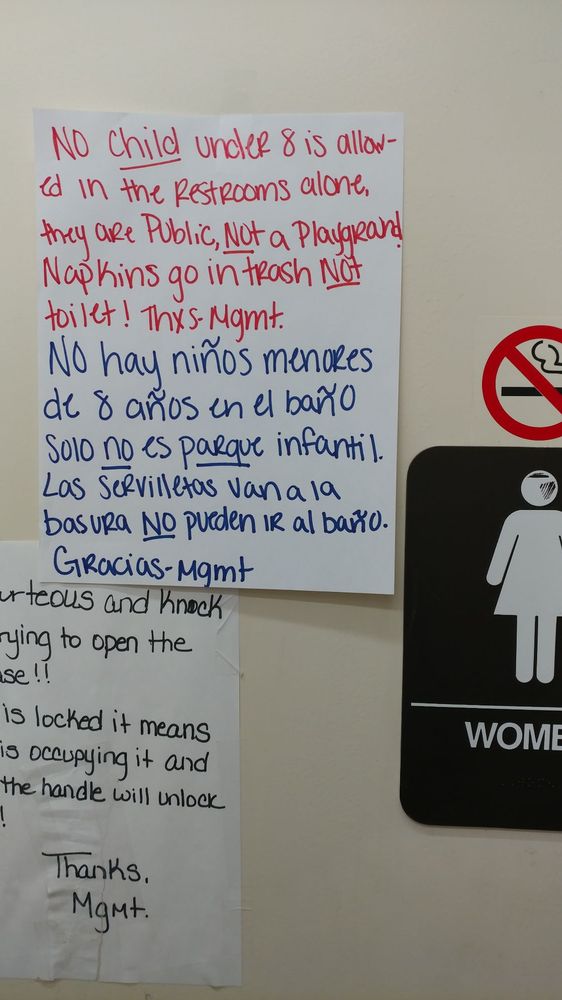 NO child under 8 is allow-
ed in the Restrooms alone,
they are Public, NOT a Playground!
Napkins go in trash NOT
toilet! Thxs-Mgmt.
NO hay niños menores
de 8 años en el baño
Solo no es parque infantil.
Las Servilletas van a la
basura NO pueden IR al baño.
GRacias-Mgmt
urteous and knock
rying to open the
se!!
is locked it means
is occupying it and
the handle will unlock
!
Thanks,
Mgmt.
WOME